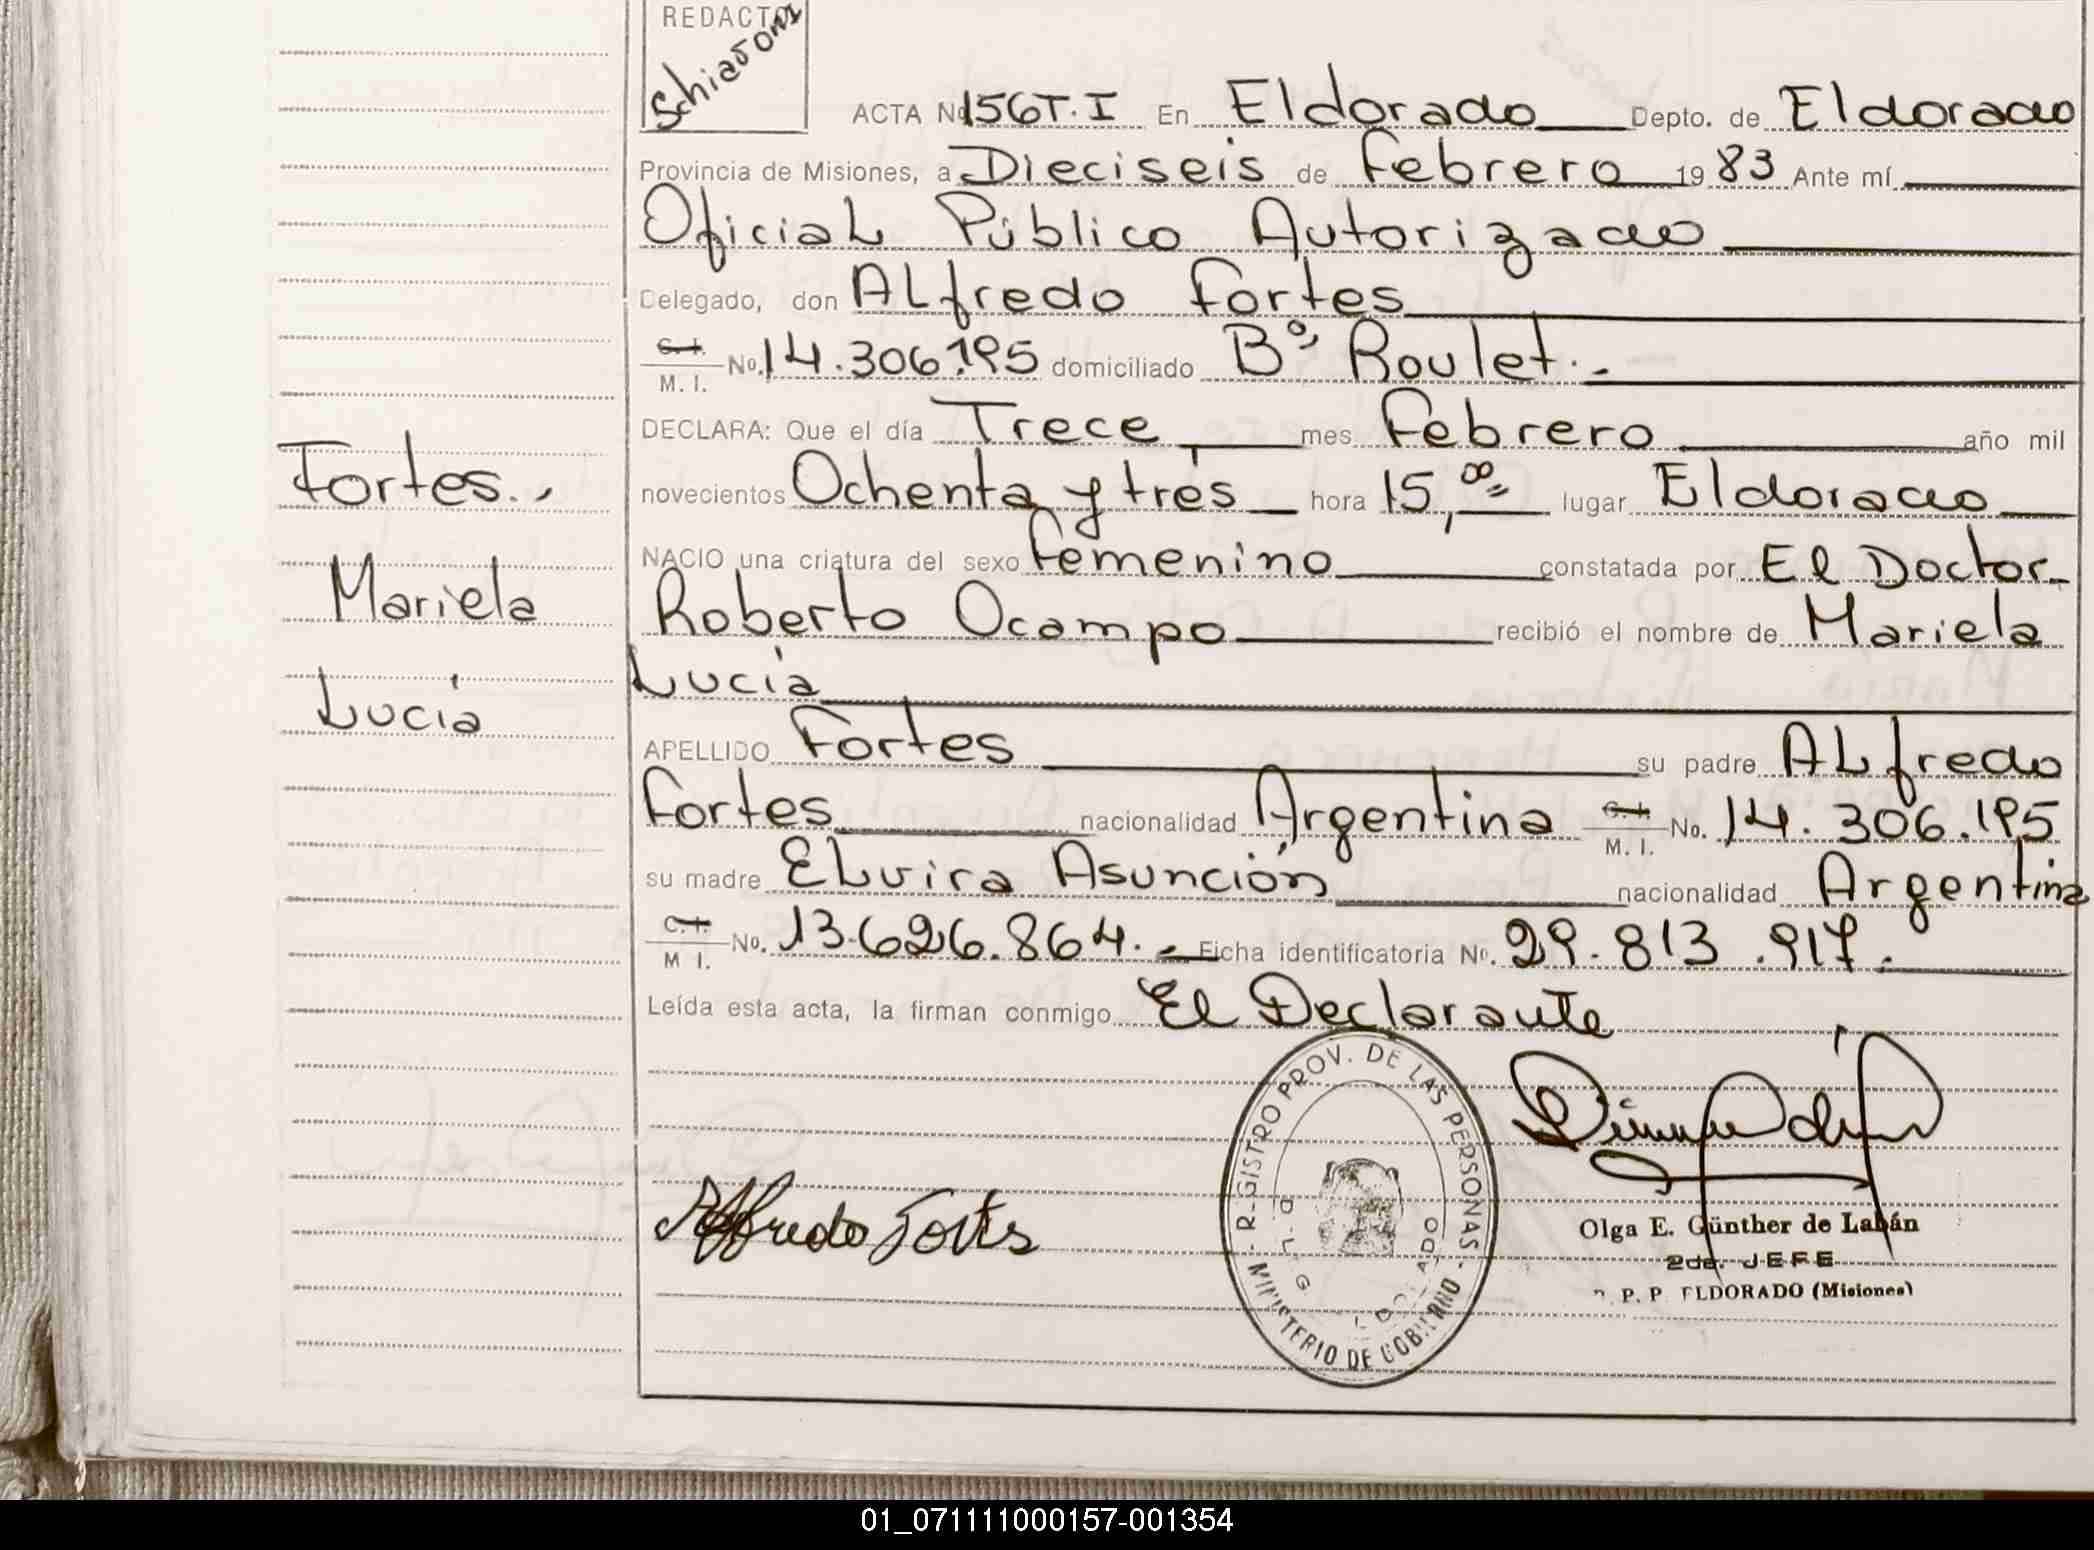 REDACTOR
Schiavoni
ACTA Nº 156 T. I En Eldorado Depto. de Eldorado
Provincia de Misiones, a Dieciseis de Febrero 1983 Ante mí
Oficial Público Autorizado
Delegado, don Alfredo Fortes
C. I.
M. I. No. 14.306.195 domiciliado Bº Roulet.-
DECLARA: Que el día Trece mes Febrero año mil
novecientos Ochenta y trés hora 15,00 lugar Eldorado
NACIO una criatura del sexo femenino constatada por El Doctor
Roberto Ocampo recibió el nombre de Mariela
Lucía
APELLIDO Fortes su padre Alfredo
Fortes nacionalidad Argentina C. I. M. I. No. 14.306.195
su madre Elvira Asunción nacionalidad Argentina
C. I.
M I. No. 13.626.864.- Ficha identificatoria Nº. 29.813.917.
Leída esta acta, la firman conmigo El Declarante
Fortes.,
Mariela
Lucía
Alfredo Fortes
R-GISTRO PROV. DE LAS PERSONAS
MINISTERIO DE GOBIERNO
Olga E. Günther de Labán
2da. JEFE
P. P. ELDORADO (Misiones)
01_071111000157-001354